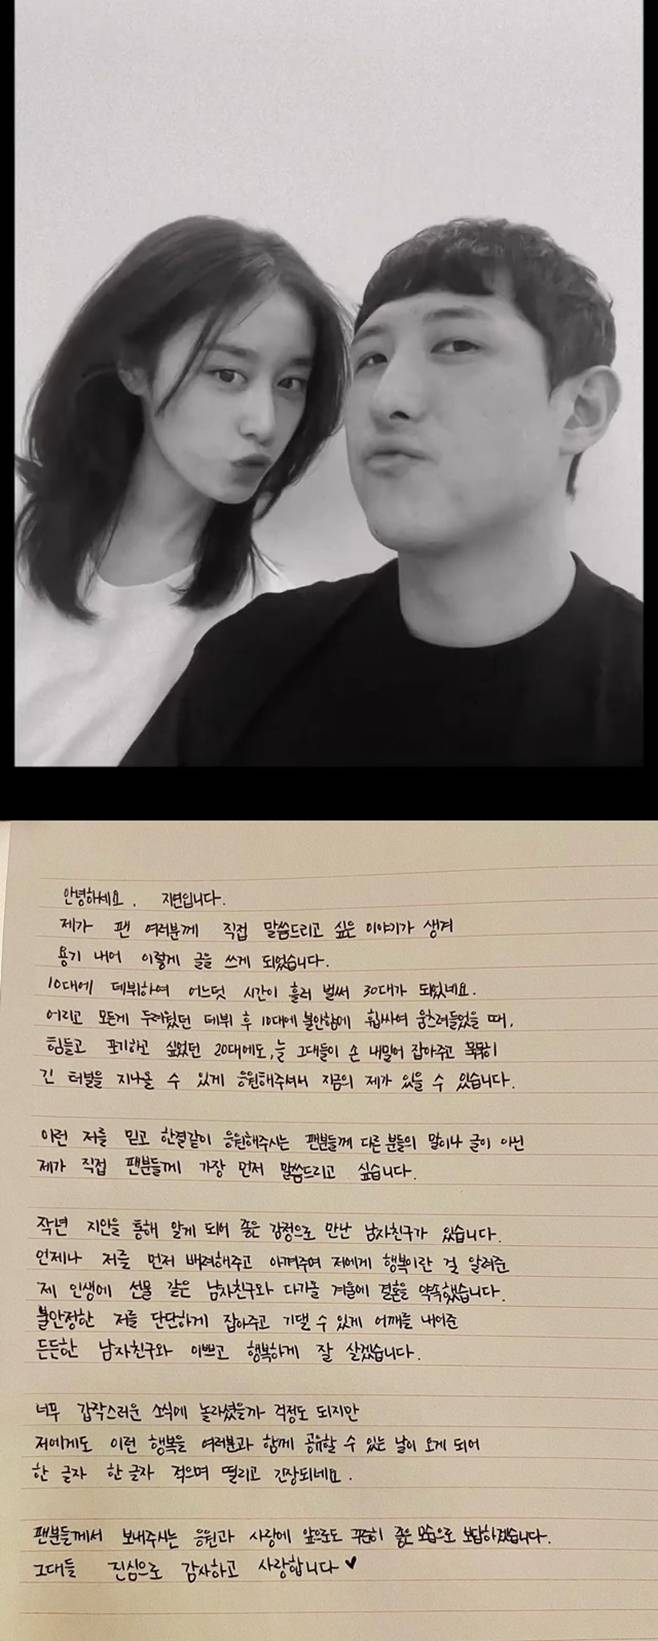 안녕하세요. 지연입니다.
제가 팬 여러분께 직접 말씀드리고 싶은 이야기가 생겨
용기 내어 이렇게 글을 쓰게 되었습니다.
10대에 데뷔하여 어느덧 시간이 흘러 벌써 30대가 되었네요.
어리고 모든게 두려웠던 데뷔 후 10대에 불안함에 휩싸여 움츠러들었을 때,
힘들고 포기하고 싶었던 20대에도, 늘 그대들이 손 내밀어 잡아주고 묵묵히
긴 터널을 지나올 수 있게 응원해주셔서 지금의 제가 있을 수 있습니다.
이런 저를 믿고 한결같이 응원해주시는 팬분들께 다른 분들의 말이나 글이 아닌
제가 직접 팬분들께 가장 먼저 말씀드리고 싶습니다.
작년 지인을 통해 알게 되어 좋은 감정으로 만난 남자친구가 있습니다.
언제나 저를 먼저 배려해주고 아껴주며 저에게 행복이란 걸 알려준
제 인생에 선물 같은 남자친구와 다가올 겨울에 결혼을 약속했습니다.
불안정한 저를 단단하게 잡아주고 기댈 수 있게 어깨를 내어준
든든한 남자친구와 이쁘고 행복하게 잘 살겠습니다.
너무 갑작스러운 소식에 놀라셨을까 걱정도 되지만
저에게도 이런 행복을 여러분과 함께 공유할 수 있는 날이 오게 되어
한 글자 한 글자 적으며 떨리고 긴장되네요.
팬분들께서 보내주시는 응원과 사랑에 앞으로도 꾸준히 좋은 모습으로 보답하겠습니다.
그대들 진심으로 감사하고 사랑합니다♥